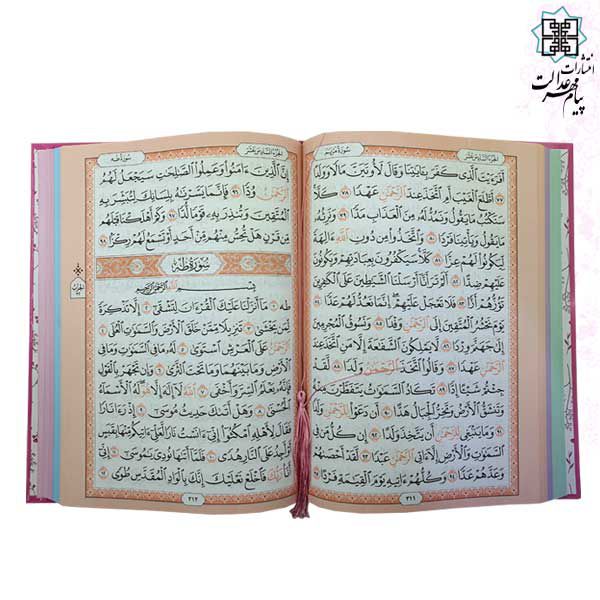 انتشارات
پیام مهر عدالت
الجزء السادس عشر
سورة مريم
أَفَرَءَيْتَ الَّذِي كَفَرَ بِـَٔايَٰتِنَا وَقَالَ لَأُوتَيَنَّ مَالًا وَوَلَدًا
٧٧ أَطَّلَعَ الْغَيْبَ أَمِ اتَّخَذَ عِندَ الرَّحْمَٰنِ عَهْدًا ٧٨ كَلَّا
سَنَكْتُبُ مَا يَقُولُ وَنَمُدُّ لَهُ مِنَ الْعَذَابِ مَدًّا ٧٩ وَنَرِثُهُ
مَا يَقُولُ وَيَأْتِينَا فَرْدًا ٨٠ وَاتَّخَذُوا مِن دُونِ اللَّهِ ءَالِهَةً
لِيَكُونُوا لَهُمْ عِزًّا ٨١ كَلَّا سَيَكْفُرُونَ بِعِبَادَتِهِمْ وَيَكُونُونَ
عَلَيْهِمْ ضِدًّا ٨٢ أَلَمْ تَرَ أَنَّا أَرْسَلْنَا الشَّيَاطِينَ عَلَى الْكَافِرِينَ
تَؤُزُّهُمْ أَزًّا ٨٣ فَلَا تَعْجَلْ عَلَيْهِمْ إِنَّمَا نَعُدُّ لَهُمْ عَدًّا ٨٤
يَوْمَ نَحْشُرُ الْمُتَّقِينَ إِلَى الرَّحْمَٰنِ وَفْدًا ٨٥ وَنَسُوقُ الْمُجْرِمِينَ
إِلَىٰ جَهَنَّمَ وِرْدًا ٨٦ لَا يَمْلِكُونَ الشَّفَاعَةَ إِلَّا مَنِ اتَّخَذَ عِندَ
الرَّحْمَٰنِ عَهْدًا ٨٧ وَقَالُوا اتَّخَذَ الرَّحْمَٰنُ وَلَدًا ٨٨ لَقَدْ
جِئْتُمْ شَيْئًا إِدًّا ٨٩ تَكَادُ السَّمَاوَاتُ يَتَفَطَّرْنَ مِنْهُ
وَتَنشَقُّ الْأَرْضُ وَتَخِرُّ الْجِبَالُ هَدًّا ٩٠ أَن دَعَوْا لِلرَّحْمَٰنِ وَلَدًا
٩١ وَمَا يَنبَغِي لِلرَّحْمَٰنِ أَن يَتَّخِذَ وَلَدًا ٩٢ إِن كُلُّ مَن فِي
السَّمَاوَاتِ وَالْأَرْضِ إِلَّا ءَاتِي الرَّحْمَٰنِ عَبْدًا ٩٣ لَّقَدْ أَحْصَاهُمْ
وَعَدَّهُمْ عَدًّا ٩٤ وَكُلُّهُمْ ءَاتِيهِ يَوْمَ الْقِيَامَةِ فَرْدًا ٩٥
٣١١
الجزء السادس عشر
سورة طه
إِنَّ الَّذِينَ ءَامَنُوا وَعَمِلُوا الصَّالِحَاتِ سَيَجْعَلُ لَهُمُ
الرَّحْمَٰنُ وُدًّا ٩٦ فَإِنَّمَا يَسَّرْنَاهُ بِلِسَانِكَ لِتُبَشِّرَ بِهِ
الْمُتَّقِينَ وَتُنذِرَ بِهِ قَوْمًا لُّدًّا ٩٧ وَكَمْ أَهْلَكْنَا قَبْلَهُم
مِّن قَرْنٍ هَلْ تُحِسُّ مِنْهُم مِّنْ أَحَدٍ أَوْ تَسْمَعُ لَهُمْ رِكْزًا ٩٨
سُورَةُ طه
بِسْمِ اللَّهِ الرَّحْمَٰنِ الرَّحِيمِ
الحزب
طه ١ مَا أَنزَلْنَا عَلَيْكَ الْقُرْءَانَ لِتَشْقَىٰ ٢ إِلَّا تَذْكِرَةً
لِّمَن يَخْشَىٰ ٣ تَنزِيلًا مِّمَّنْ خَلَقَ الْأَرْضَ وَالسَّمَاوَاتِ الْعُلَى ٤
الرَّحْمَٰنُ عَلَى الْعَرْشِ اسْتَوَىٰ ٥ لَهُ مَا فِي السَّمَاوَاتِ وَمَا فِي
الْأَرْضِ وَمَا بَيْنَهُمَا وَمَا تَحْتَ الثَّرَىٰ ٦ وَإِن تَجْهَرْ بِالْقَوْلِ
فَإِنَّهُ يَعْلَمُ السِّرَّ وَأَخْفَى ٧ اللَّهُ لَا إِلَٰهَ إِلَّا هُوَ لَهُ الْأَسْمَاءُ
الْحُسْنَىٰ ٨ وَهَلْ أَتَاكَ حَدِيثُ مُوسَىٰ ٩ إِذْ رَءَا نَارًا
فَقَالَ لِأَهْلِهِ امْكُثُوا إِنِّي ءَانَسْتُ نَارًا لَّعَلِّي ءَاتِيكُم مِّنْهَا بِقَبَسٍ
أَوْ أَجِدُ عَلَى النَّارِ هُدًى ١٠ فَلَمَّا أَتَاهَا نُودِيَ يَا مُوسَىٰ ١١ إِنِّي
أَنَا رَبُّكَ فَاخْلَعْ نَعْلَيْكَ إِنَّكَ بِالْوَادِ الْمُقَدَّسِ طُوًى ١٢
٣١٢